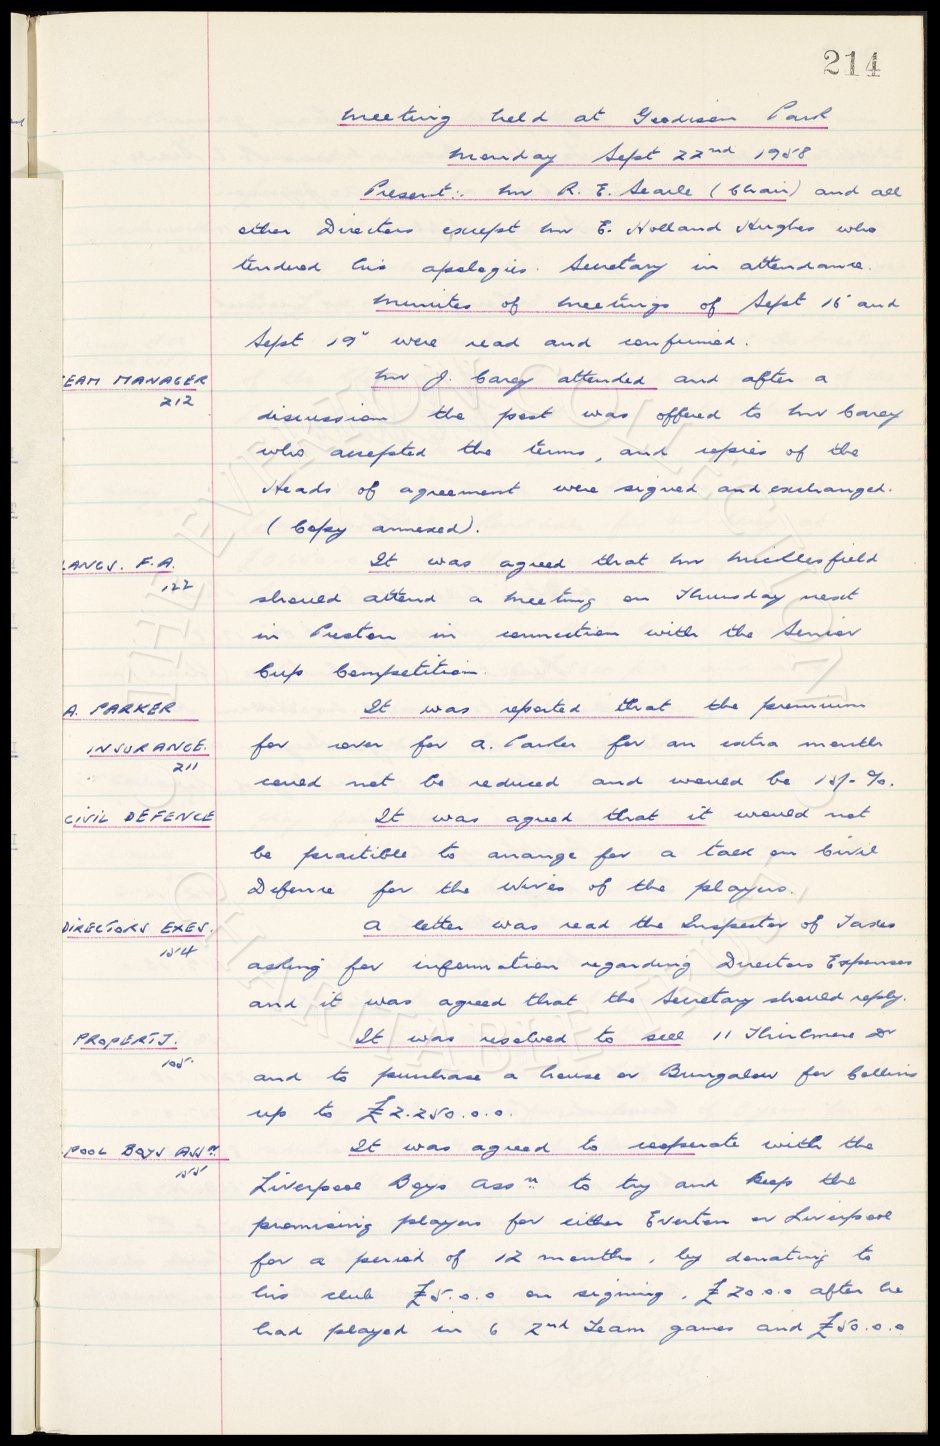 214
Meeting held at Goodison Park
Monday Sept 22nd 1958
Present:- Mr R. E. Searle (Chair) and all
other Directors except Mr E. Holland Hughes who
tendered his apologies. Secretary in attendance.
Minutes of Meetings of Sept 15 and
Sept 19" were read and confirmed.
EAM MANAGER
212
Mr J. Carey attended and after a
discussion the post was offered to Mr Carey
who accepted the terms, and copies of the
Heads of agreement were signed and exchanged.
(Copy annexed).
LANCS. F.A.
122
It was agreed that Mr Micklesfield
should attend a Meeting on Thursday next
in Preston in connection with the Senior
Cup Competition.
A. PARKER
INSURANCE.
211
It was reported that the premium
for cover for A. Parker for an extra month
could not be reduced and would be 15/- %.
CIVIL DEFENCE
It was agreed that it would not
be practible to arrange for a talk on Civil
Defence for the Wives of the players.
DIRECTORS EXES.
154
A letter was read the Inspector of Taxes
asking for information regarding Directors Expenses
and it was agreed that the Secretary should reply.
PROPERTY.
105.
It was resolved to sell 11 Thirlmere Dr
and to purchase a house or Bungalow for Collins
up to £2.250.0.0.
POOL BOYS ASSn.
155
It was agreed to cooperate with the
Liverpool Boys Assn to try and keep the
promising players for either Everton or Liverpool
for a period of 12 months, by donating to
his club £5.0.0 on signing, £20.0.0 after he
had played in 6 2nd Team games and £50.0.0
© THE EVERTON COLLECTION
CHARITABLE TRUST